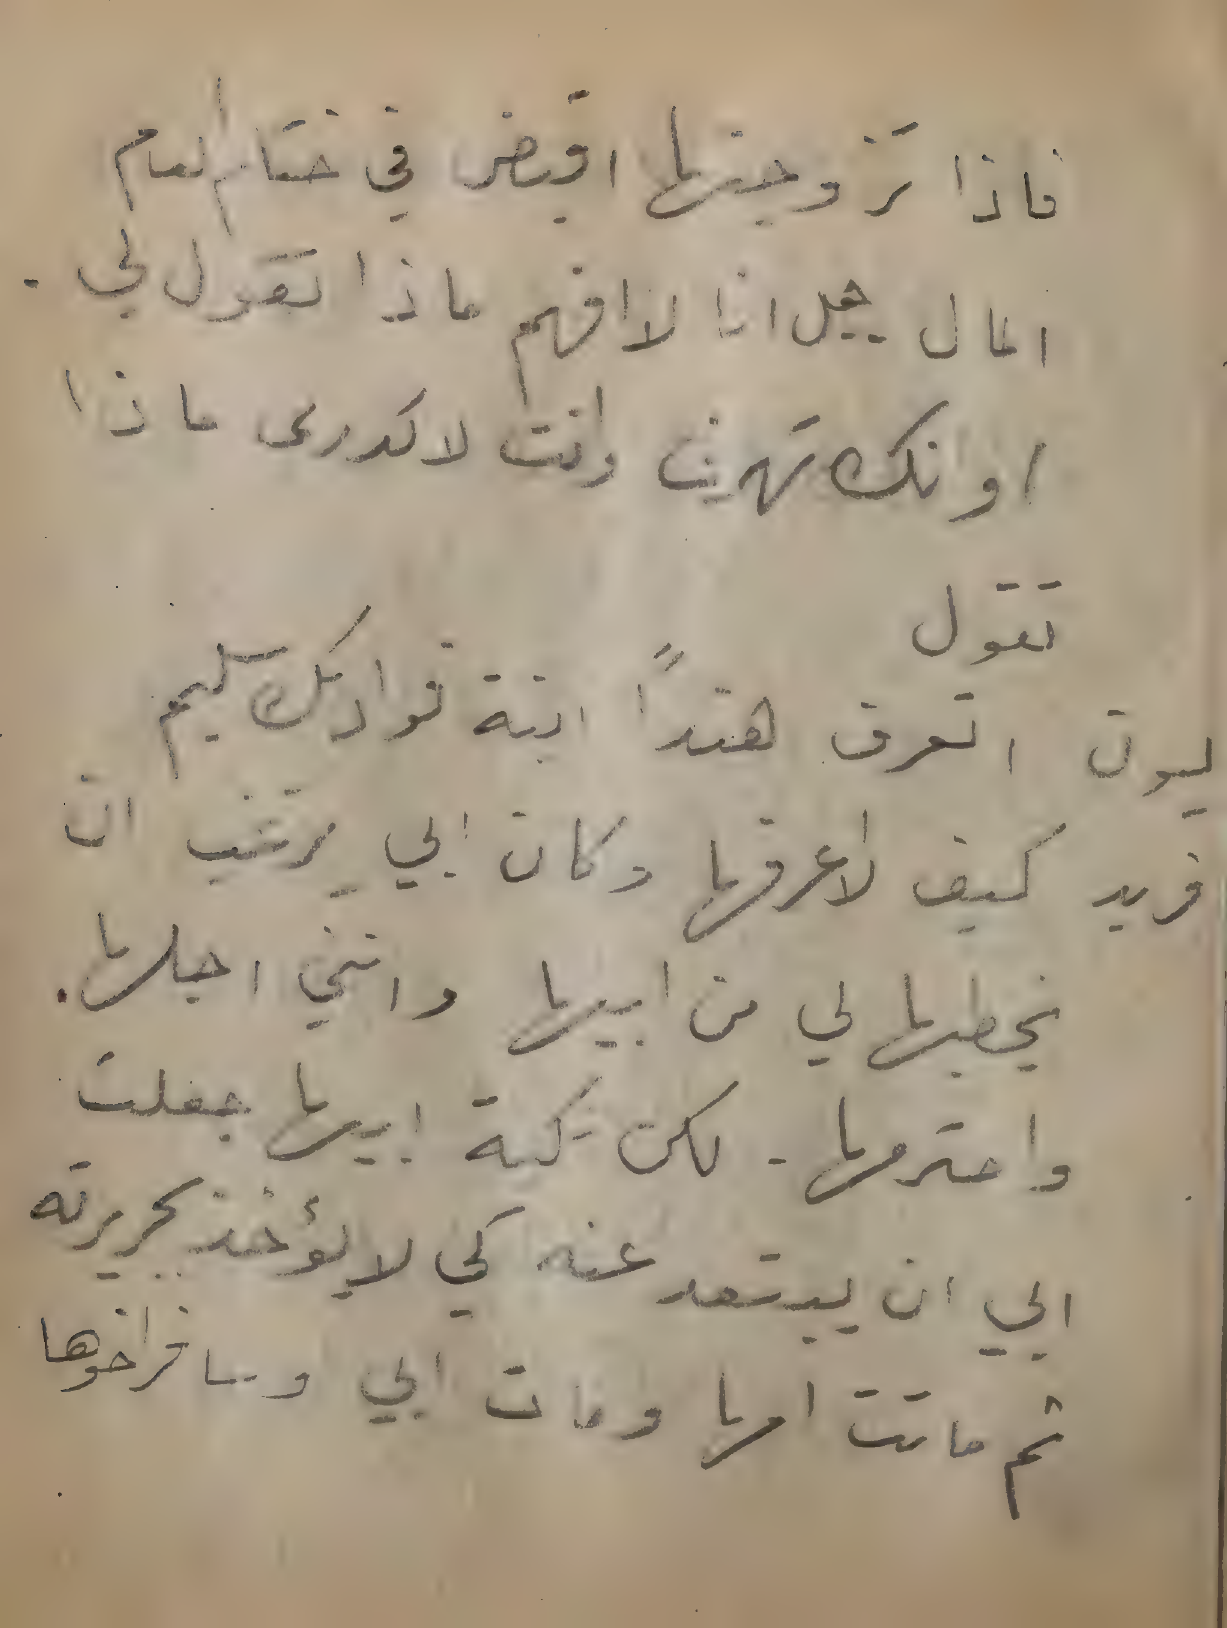 فاذا تزوجتها اقبض في ختام العام
المال جميل انا لا افهم ماذا تقول لي .
او انك تهرف وانت لا تدري ماذا
تقول
ليون اتعرف هنداً ابنة فواد بك سليم
فريد كيف لا اعرفها وكان ابي يرغب ان
يخطبها لي من ابيها وانني اجلها .
واحترمها . لكن نكبة ابيها جعلت
ابي ان يبتعد عنه كي لا يؤخذ بجريرته
ثم ماتت امها ومات ابي وسافر اخوها